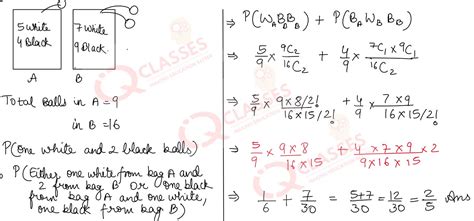 5 White
4 Black
A
7 White
9 Black.
B
Total Balls in A = 9
in B = 16
P(one white and 2 black balls)
P(Either one white from bag A and
2 from bag B Or one black
from bag A and one white,
one black from bag B)
⇒ P(W_A B_B B_B) + P(B_A W_B B_B)
⇒ 5/9 9C2/16C2 + 4/9 7C1 × 9C1/16C2
⇒ 5/9 × 9×8/2!/16×15/2! + 4/9 × 7×9/16×15/2!
⇒ 5/9 × 9×8/16×15 + 4×7×9×2/9×16×15
⇒ 1/6 + 7/30 = 5+7/30 = 12/30 = 2/5 Ans
CLASSES
CLASSES